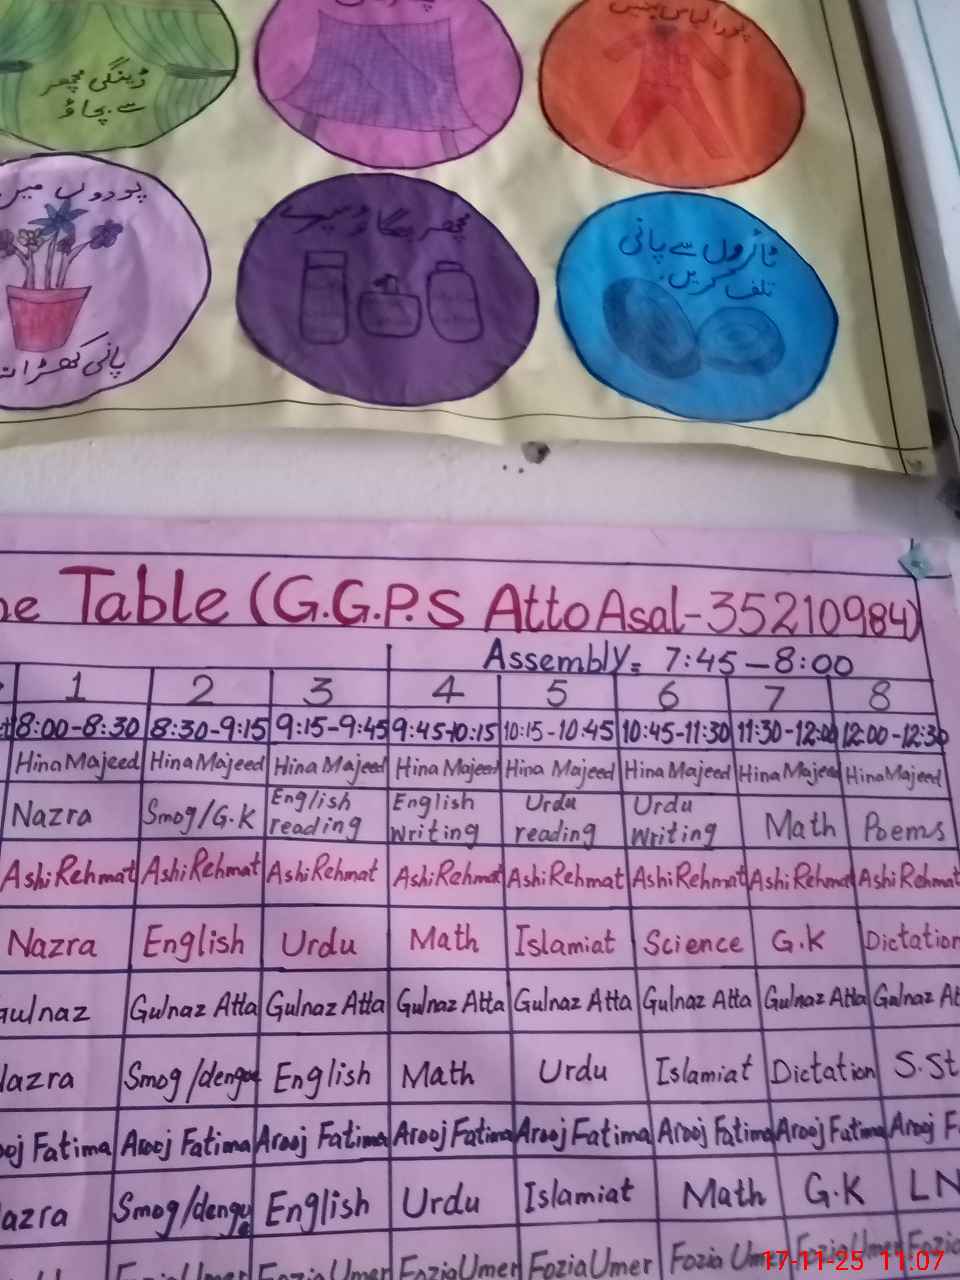 ڈینگی مچھر
سے بچاؤ
پورا لباس پہنیں
پودوں میں
پانی کھڑا نہ
مچھر بھگاؤ سپرے
ٹائروں سے پانی
تلف کریں
Table (G.G.P.S Atto Asal-35210984)
Assembly= 7:45-8:00
1 2 3 4 5 6 7 8
8:00-8:30 8:30-9:15 9:15-9:45 9:45-10:15 10:15-10:45 10:45-11:30 11:30-12:00 12:00-12:30
Hina Majeed Hina Majeed Hina Majeed Hina Majeed Hina Majeed Hina Majeed Hina Majeed Hina Majeed
Nazra Smog/G.K English reading English writing Urdu reading Urdu writing Math Poems
Ashi Rehmat Ashi Rehmat Ashi Rehmat Ashi Rehmat Ashi Rehmat Ashi Rehmat Ashi Rehmat Ashi Rehmat
Nazra English Urdu Math Islamiat Science G.K Dictation
Gulnaz Gulnaz Atta Gulnaz Atta Gulnaz Atta Gulnaz Atta Gulnaz Atta Gulnaz Atta Gulnaz At
azra Smog/dengue English Math Urdu Islamiat Dictation S.St
ooj Fatima Arooj Fatima Arooj Fatima Arooj Fatima Arooj Fatima Arooj Fatima Arooj Fatima Arooj F
azra Smog/dengue English Urdu Islamiat Math G.K LN
Fozia Umer Fozia Umer Fozia Umer Fozia Umer Fozia Umer Fozia Umer Fozia
17-11-25 11:07